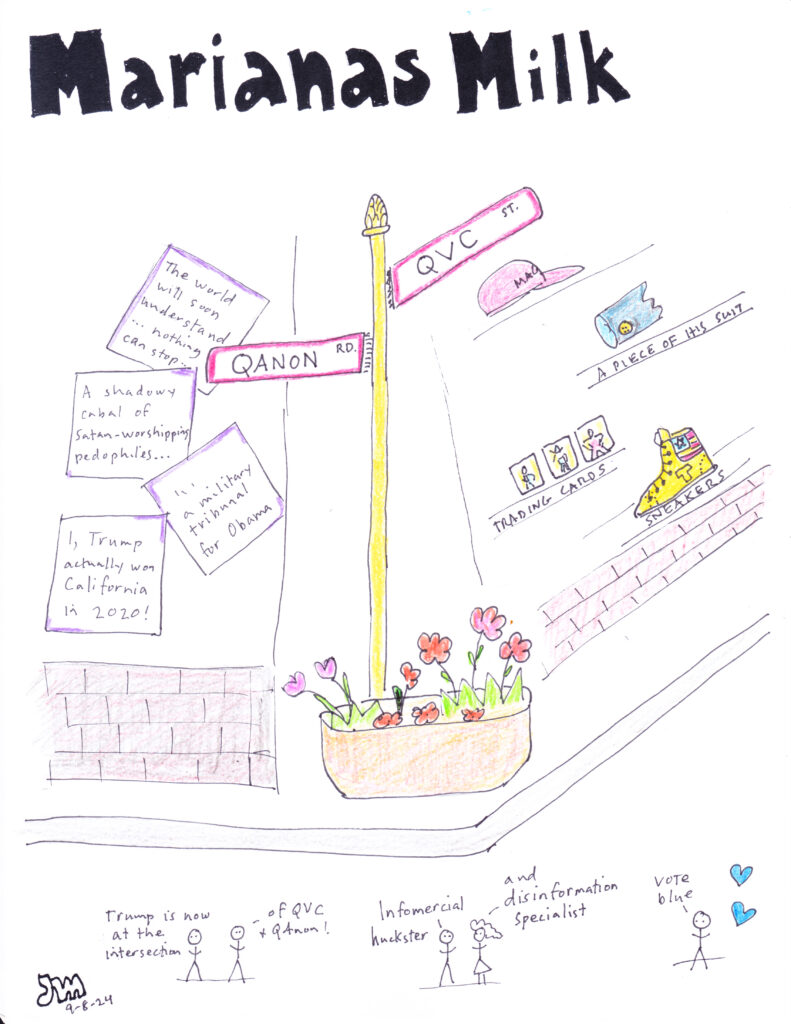 Marianas Milk
QVC ST.
MAG
A PIECE OF HIS SUIT
The world
will soon
understand
... nothing
can stop...
QANON RD.
A shadowy
cabal of
Satan-worshipping
pedophiles...
a military
tribunal
for Obama
TRADING CARDS
T
SNEAKERS
I, Trump
actually won
California
in 2020!
Trump is now
at the
intersection
of QVC
+ QAnon!
Infomercial
huckster
and
disinformation
specialist
Vote
blue
JM
9-8-24